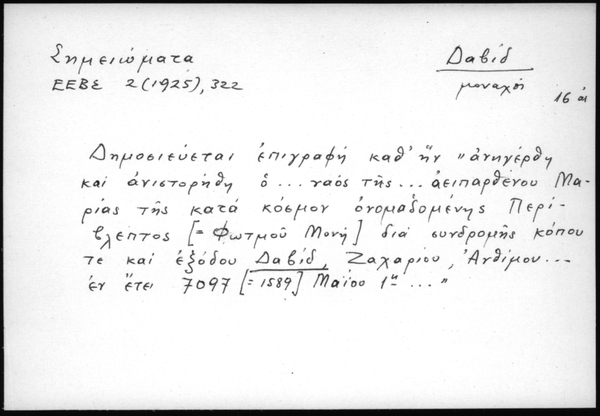 Σημειώματα
ΕΕΒΣ 2 (1925), 322
Δαβίδ
μοναχοί
16 αἰ
Δημοσιεύεται ἐπιγραφή καθ' ἥν "ἀνηγέρθη
καί ἀνιστορήθη ὁ ... ναός τῆς ... ἀειπαρθένου Μα-
ρίας τῆς κατά κόσμον ὀνομαδομένης Περί-
βλεπτος [= Φωτμοῦ Μονή] διά συνδρομῆς κόπου
τε καί ἐξόδου Δαβίδ, Ζαχαρίου, Ἀνθίμου...
ἐν ἔτει 7097 [= 1589] Μαΐου 1η ... "